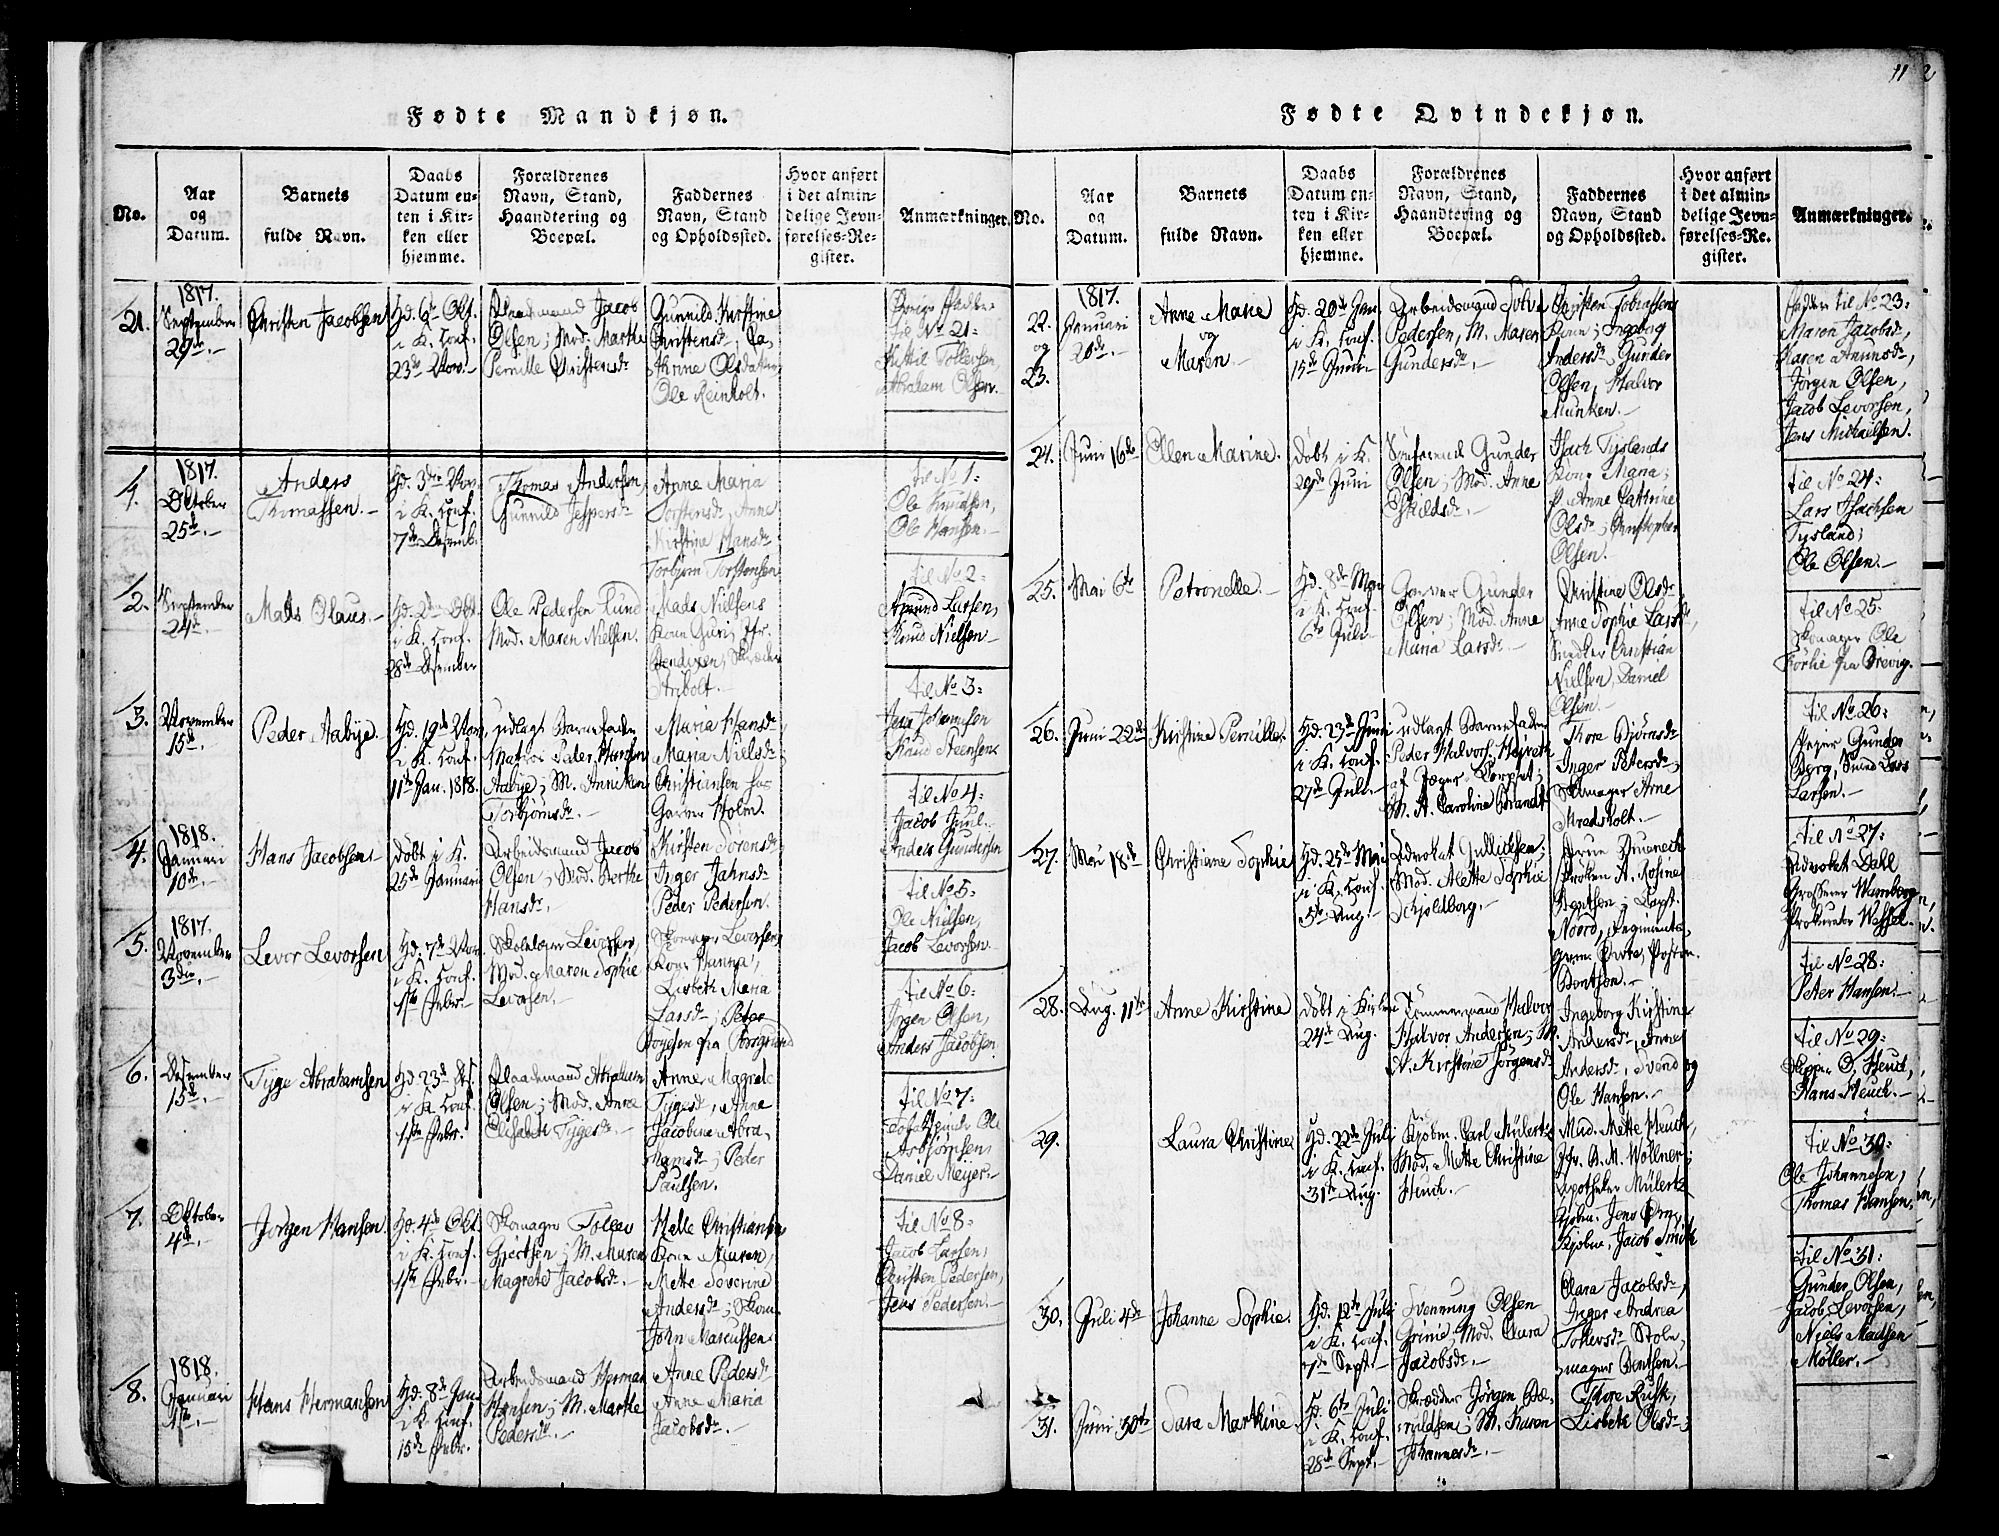 11
2
Fødte Mandkjøn.
No.
Aar
og
Datum.
Barnets
fulde Navn.
Daabs
Datum en-
ten i Kir-
ken eller
hjemme.
Forældrenes
Navn, Stand,
Haandtering og
Boepæl.
Faddernes
Navn, Stand
og Opholdssted.
Hvor anført
i det almin-
delige Jevn-
førelses-Re-
gister.
Anmærkninger.
21.
1817.
September
29de.
Christen Jacobsen
Hd. 6te Okt.
i K. Conf.
23de Nov.
Jacob
Olsen; Mod. Marthe
Pernille Christensdr
Gunnild Kirstine
Christensdr, Ca-
thrine Olsdatter
Ole Reinholt.
Til No 21:
Kittil Tollefsen,
Abraham Olsen.
1.
1817.
Oktober
25de.
Anders
Thomassen.
Hd. 3die Nov.
i K. Conf.
7de Desemb.
Thomas Andersen,
Gunnild Jespersdr
Anne Maria
Torstensdr, Anne
Kirstine Hansdr
Torbjørn Torstensen
til No 1:
Ole Knudsen,
Ole Hansen.
2.
September
24de.
Mads Olaus.
Hd. 2den Okt.
i K. Conf.
28de Desember
Ole Pedersen Lund
Mod. Maren Nielsen.
Mads Nielsens
Kone Guri, Jfr.
Anbolt.
til No 2:
Amund Larsen,
Knud Nielsen
3.
November
15de.
Peder Aabye.
Hd. 19de Nov.
i K. Conf.
11te Jan. 1818.
udlagt Barnefader
Matros Peder Hansen
Aabye; M. Anniken
Torbjørnsdr
Maria Hansdr
Maria Nielsdr
Christiansen hos
Garver Holm.
til No 3:
Jens Johannsen
Knud Steensen
4.
1818.
Januari
10de.
Hans Jacobsen
døbt i K.
25de Januari
Arbeidsmand Jacob
Olsen; Mod. Berthe
Hansdr.
Kirsten Sørensdr
Inger Jahnsdr
Peder Pedersen.
til No 4:
Jacob Juul.
Anders Gundersen
5.
1817.
November
3die
Levor Levorsen
Hd. 7de Nov.
i K. Conf.
1ste Febr.
Skomager Levorsen,
Mod. Maren Sophie
Levorsen.
Skomager Levorsens
Kone Hanna,
Lisbeth Maria
Larsdr; Peter
Boyesen fra Porsgrund
til No 5:
Ole Nielsen,
Jacob Levorsen
6.
Desember
15de.
Tyge Abrahamsen
Hd. 23de Ds.
i K. Conf.
1ste Febr.
Abraham
Olsen; Mod. Anne
Elisabeth Tygesdr
Anne Magrete
Tygesdr, Anne
Jacobine Abra-
hamsdr; Peder
Paulsen.
til No 6:
Jørgen Olsen,
Anders Jacobsen.
7.
Oktober
4de.
Jørgen Hansen.
Hd. 4de Okt.
i K. Conf.
1ste Febr.
Skomager Tollev
Giertsen; M. Maren
Magrete Jacobsdr.
Helle Christiansens
Kone Maren,
Mette Severine
Andersdr; Skom.
John Marcussen
til No 7:
Ole
Asbjørnsen,
Daniel Meyer.
8.
1818.
Januari
1ste.
Hans Hermansen
Hd. 8de Jan.
i K. Conf.
15de Febr.
Arbeidsmand Herman
Hansen; M. Marthe
Pedersdr.
Anne Pedersdr
Anne Maria
Jacobsdr.
til No 8:
Jacob Larsen,
Christen Pedersen,
Jens Pedersen.
Fødte Qvindekjøn.
No.
Aar
og
Datum.
Barnets
fulde Navn.
Daabs
Datum en-
ten i Kir-
ken eller
hjemme.
Forældrenes
Navn, Stand,
Haandtering og
Boepæl.
Faddernes
Navn, Stand
og Opholdssted.
Hvor anført
i det almin-
delige Jevn-
førelses-Re-
gister.
Anmærkninger.
22.
og
23.
1817.
Januari
20de.
Anne Marie
og
Maren.
Hd. 20de Jan.
i K. Conf.
15de Juni
Arbeidsmand Solve
Pedersen, M. Maren
Gundersdr.
Christen Tobiassens
Kone; Ingeborg
Andersdr, Gunder
Olsen, Halvor
Munken.
Fadder til No 23:
Maren Jacobsdr,
Maren Amundsdr,
Jørgen Olsen,
Jacob Levorsen,
Jens Michaelsen.
24.
Juni 16de
Ellen Marine.
døbt i K.
29de Juni
Gunder
Olsen; Mod. Anne
Eskildsdr.
Isach Tyslands
Kone Maria;
Anne Cathrine
Olsdr; Christopher
Olsen.
til No 24:
Lars Isachsen
Tysland;
Ole Olsen.
25.
Mai 6te
Petronelle.
Hd. 8de Mai
i K. Conf.
6te Juli
Garver Gunder
Olsen; Mod. Anne
Maria Larsdr.
Christine Olsdr
Anne Sophie Larsdr,
Snedker Christian
Nielsen, Daniel
Olsen.
til No 25:
Skomager Ole
Førlie fra Brevig.
26.
Juni 22de
Kirstine Pernille.
Hd. 23de Juni
i K. Conf.
27de Juli.
udlagt Barnefader
Peder Halvors.
af Jæger Corpset;
M. A. Caroline Brandt
Thore Bjørnsdr
Inger Petersdr;
Skomager Arne
Mredsholt.
til No 26:
Gunder
Berg, Smed Lars
Larsen.
27.
Mai 18de
Christiane Sophie
Hd. 25de Mai
i K. Conf.
5te Aug.
Advokat Gulliksen;
Mod. Mette Sophie
Schjoldborg.
Frøken A. Rosine
Bentsen; Capt.
Noord, Regiments-
Bentsen.
til No 27:
Advokat Dahl
Grosserer Wamberg
Prokurator Wessel.
28.
Aug. 11te
Anne Kirstine
døbt i Kirken
24de Aug.
Tømmermand Halvor
Halvor Andersen; M.
A. Kirstine Jørgensdr
Ingeborg Kirstine
Andersdr, Anne
Andersdr, Svend og
Ole Hansen.
til No 28:
Peter Hansen.
29.
Laura Christine
Hd. 22de Juli
i K. Conf.
31te Aug.
Kjøbm. Carl Mülertz
Mod. Mette Christine
Heuch.
Mad. Mette Heuch,
Jfr. A. M. Wøllner;
Apotheker Mülertz
Kjøbm. Jens Orn,
Kjøbm. Jacob Smith
til No 29:
Skipper O. Heuch,
Hans Heuch.
30.
Juli 4de
Johanne Sophie.
Hd. 12te Juli
i K. Conf.
7de Sept.
Svennung Olsen
Grinie; Mod. Clara
Jacobsdr.
Clara Jacobsdr,
Inger Andrea
Tollevsdr Stole-
mager Bentsen.
til No 30:
Ole Johannesen,
Thomas Hansen.
31.
Juni 30te
Sara Marthine
Hd. 6te Juli
i K. Conf.
28de Sept.
Skrædder Jørgen
M. Karen
Johannesdr.
Thore Risk,
Lisbeth Olsdr;
til No 31:
Gunder Olsen,
Jacob Levorsen,
Niels Madsen
Møller.